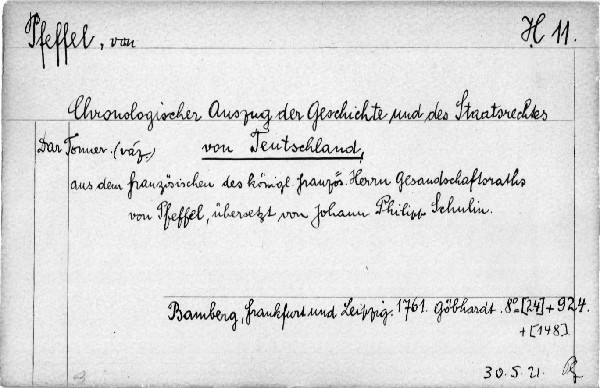 Pfeffel, von
H 11.
Chronologischer Auszug der Geschichte und des Staatsrechtes
Dar Tonner. (váz.) von Teutschland,
aus dem französischen des königl. französ. Herrn Gesandschaftsraths
von Pfeffel, übersetzt von Johann Philipp Schulin.
Bamberg, Frankfurt und Leipzig. 1761. Göbhardt. 8° [24] + 924.
+ [148]
30. 5. 21.